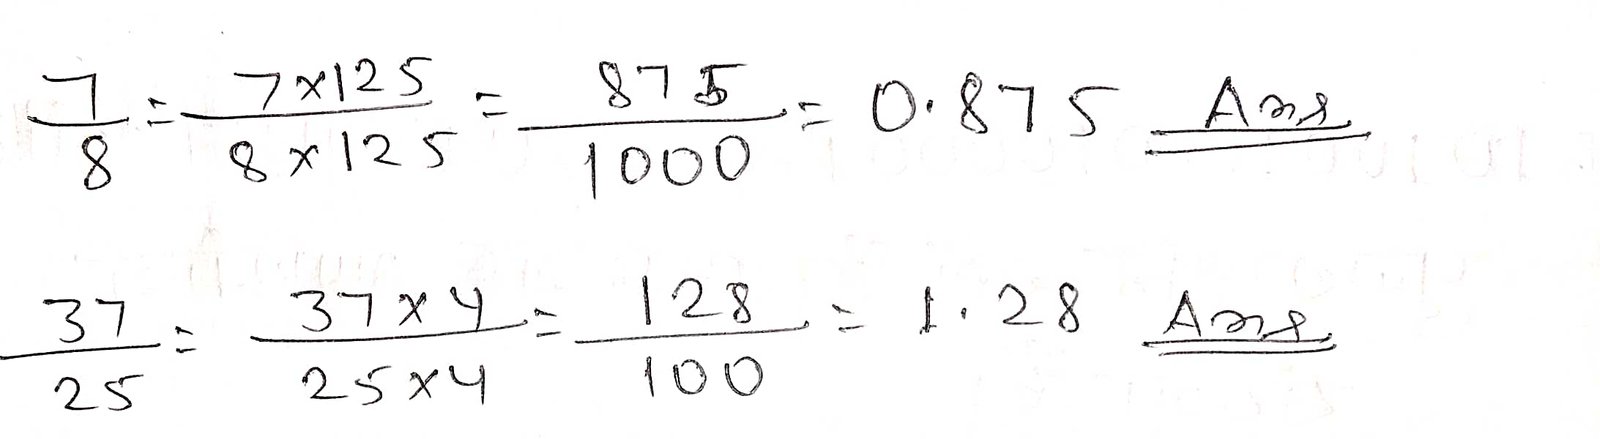 7/8 = 7×125/8×125 = 875/1000 = 0.875 Ans
37/25 = 37×4/25×4 = 128/100 = 1.28 Ans